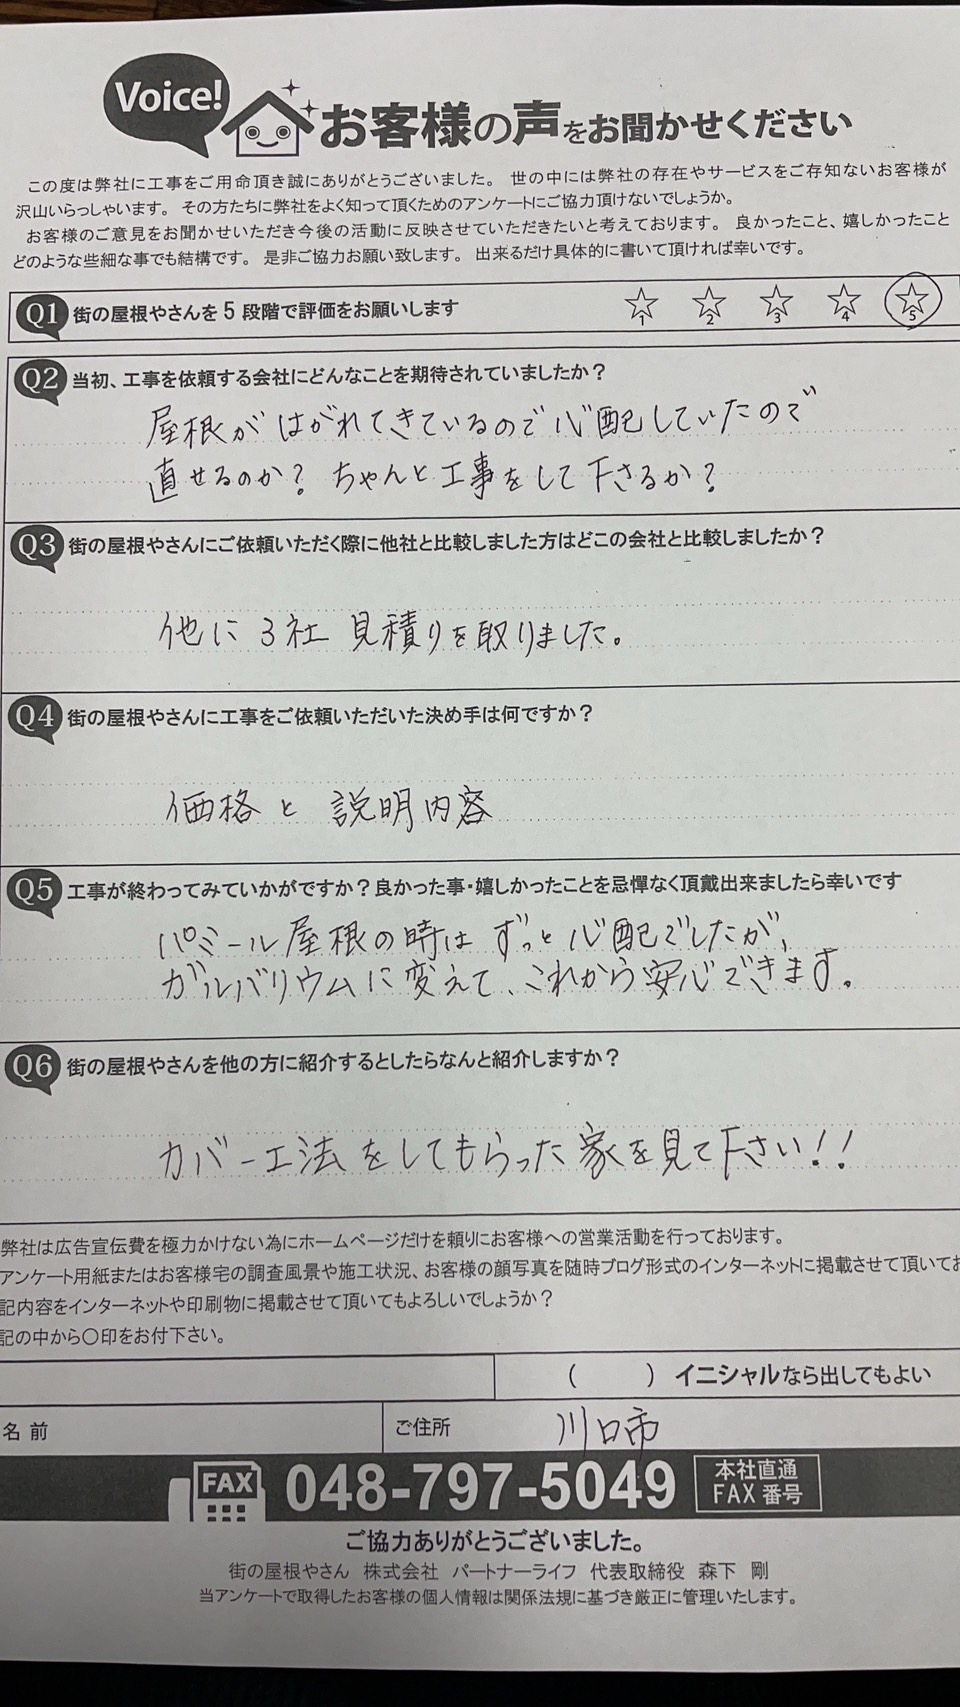 Voice!
お客様の声をお聞かせください
この度は弊社に工事をご用命頂き誠にありがとうございました。 世の中には弊社の存在やサービスをご存知ないお客様が
沢山いらっしゃいます。 その方たちに弊社をよく知って頂くためのアンケートにご協力頂けないでしょうか。
お客様のご意見をお聞かせいただき今後の活動に反映させていただきたいと考えております。 良かったこと、嬉しかったこと
どのような些細な事でも結構です。 是非ご協力お願い致します。 出来るだけ具体的に書いて頂ければ幸いです。
Q1 街の屋根やさんを 5 段階で評価をお願いします 1 2 3 4 5
Q2 当初、工事を依頼する会社にどんなことを期待されていましたか？
屋根がはがれてきているので心配していたので
直せるのか？ ちゃんと工事をして下さるか？
Q3 街の屋根やさんにご依頼いただく際に他社と比較しました方はどこの会社と比較しましたか？
他に3社 見積りを取りました。
Q4 街の屋根やさんに工事をご依頼いただいた決め手は何ですか？
価格と 説明内容
Q5 工事が終わってみていかがですか？良かった事・嬉しかったことを忌憚なく頂戴出来ましたら幸いです
パミール屋根の時は ずっと心配でしたが、
ガルバリウムに変えて、これから安心できます。
Q6 街の屋根やさんを他の方に紹介するとしたらなんと紹介しますか？
カバー工法をしてもらった家を見て下さい!!
弊社は広告宣伝費を極力かけない為にホームページだけを頼りにお客様への営業活動を行っております。
アンケート用紙またはお客様宅の調査風景や施工状況、お客様の顔写真を随時ブログ形式のインターネットに掲載させて頂いてお
記内容をインターネットや印刷物に掲載させて頂いてもよろしいでしょうか？
記の中から〇印をお付下さい。
（　　）イニシャルなら出してもよい
名 前 ご住所 川口市
FAX 048-797-5049 本社直通
FAX 番号
ご協力ありがとうございました。
街の屋根やさん 株式会社 パートナーライフ 代表取締役 森下 剛
当アンケートで取得したお客様の個人情報は関係法規に基づき厳正に管理いたします。